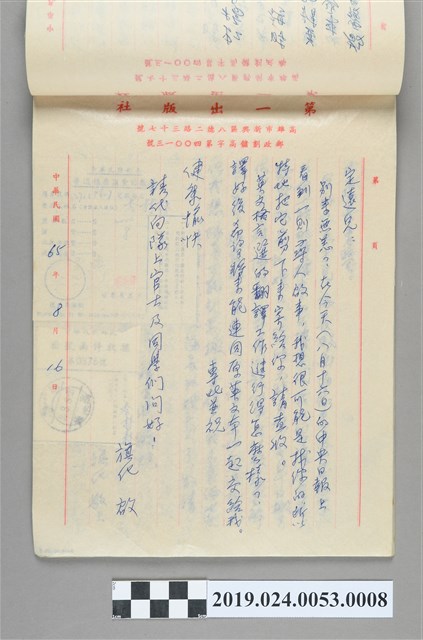 第一出版社
高雄市新興區八德二路三十七號
郵政劃撥儲高字第四〇〇一三號
第 頁
定遠兄：
別來無恙？在今天（八月十六日）的中央日報上
看到一則尋人啟事，我想很可能是找你的，所以
特地把它剪下來寄給你，請查收。
英文格言選的翻譯工作進行得怎麼樣了？
譯好後希望將來能連同原英文本一起交給我。
專此並祝
健康愉快
請代向隊上官士及同學們問好！
旗化 啟
中華民國 65 年 8 月 16 日
2019.024.0053.0008